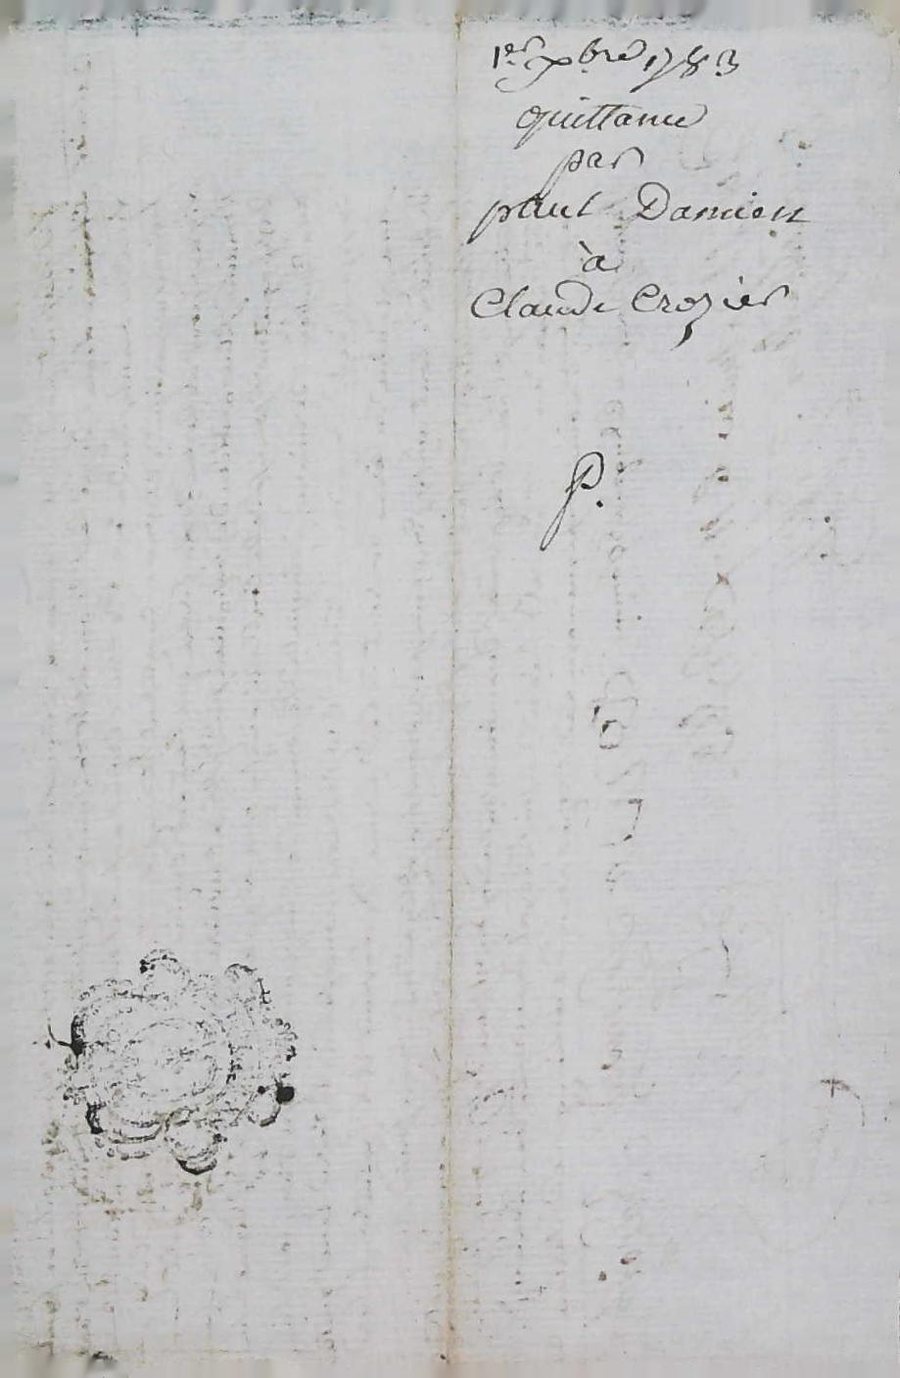 1er Xbre 1783
quittance
par
paul Damien
à
Claude Crozier
P.